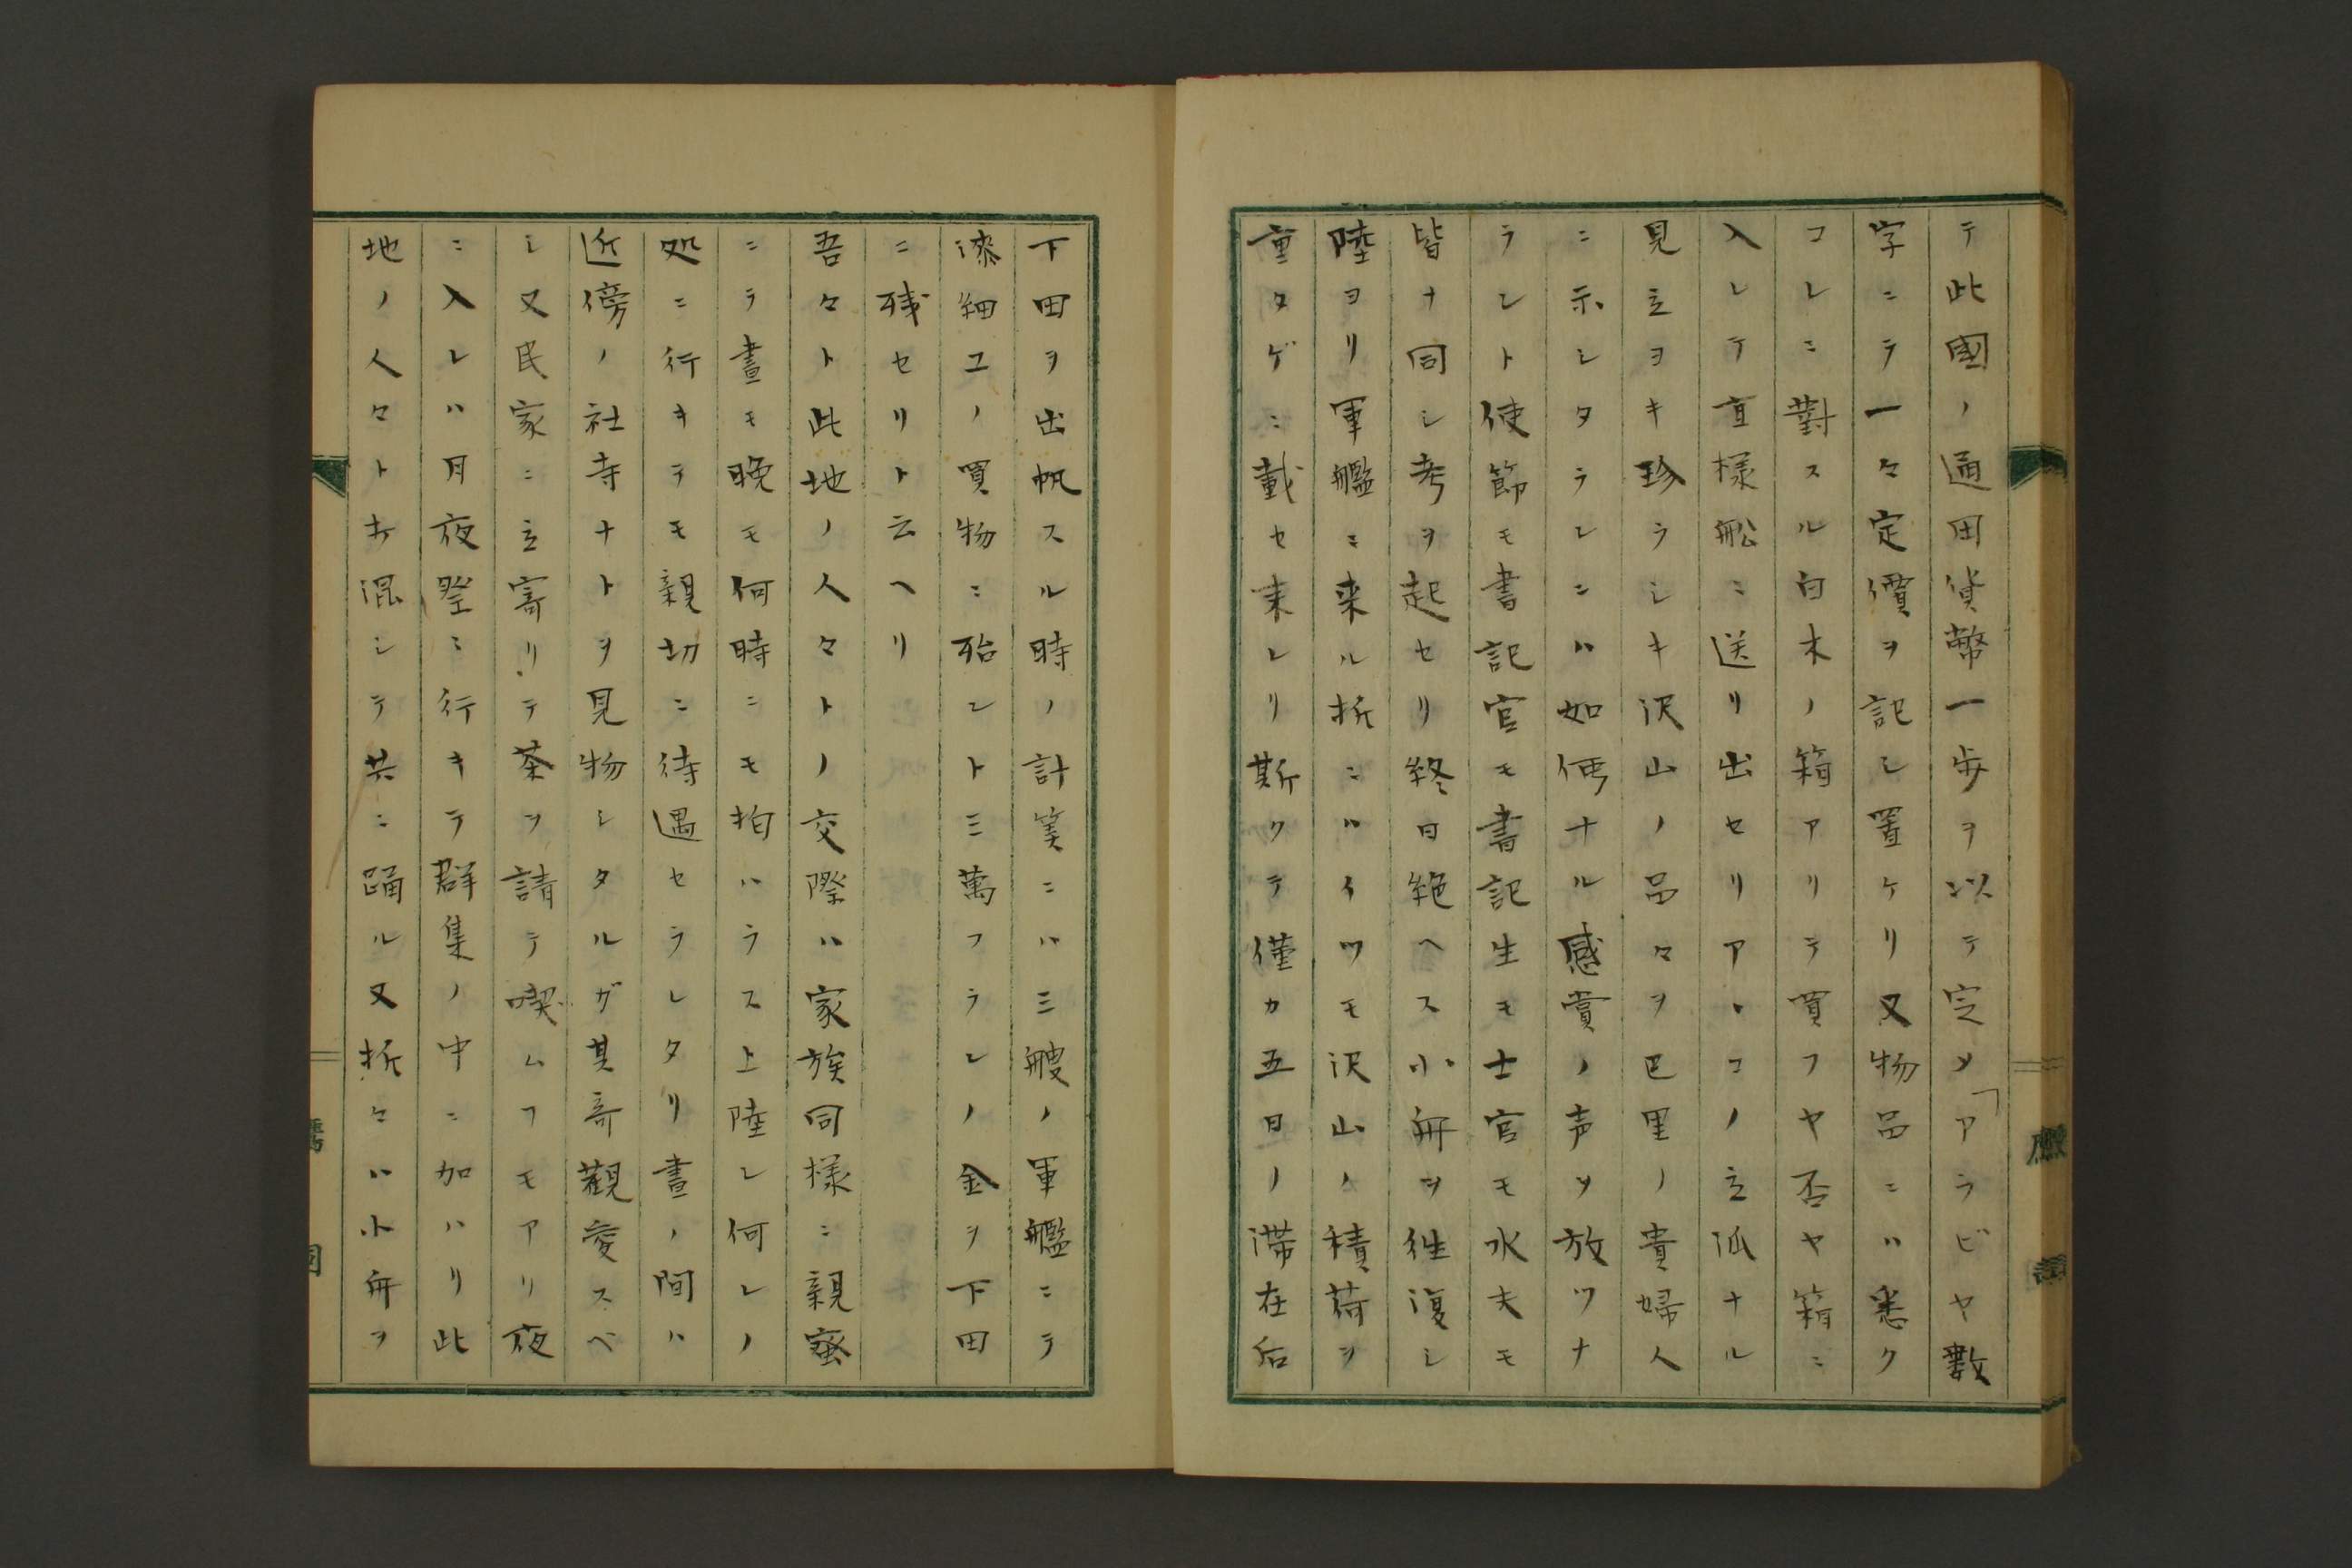 テ此國ノ通用貨幣一歩ヲ以テ定メ「アラビヤ數
字ニテ一々定價ヲ記シ置ケリ又物品ニハ悉ク
コレニ對スル白木ノ箱アリテ買フヤ否ヤ箱ニ
入レテ直様舩ニ送リ出セリアヽコノ立派ナル
見立ヨキ珍ラシキ沢山ノ品々ヲ巴里ノ貴婦人
ニ示シタランニハ如何ナル感賞ノ声ヲ放ツナ
ラント使節モ書記官モ書記生モ士官モ水夫モ
皆ナ同シ考ヲ起セリ終日絶ヘス小舟ヲ往復シ
陸ヨリ軍艦ニ来ル折ニハイツモ沢山ノ積荷ヲ
重タゲニ載セ来レリ斯クテ僅カ五日ノ滞在后
下田ヲ出帆スル時ノ計算ニハ三艘ノ軍艦ニテ
漆細工ノ買物ニ殆ント三萬フランノ金ヲ下田
ニ残セリト云ヘリ
吾々ト此地ノ人々トノ交際ハ家族同様ニ親蜜
ニテ晝モ晩モ何時ニモ拘ハラス上陸シ何レノ
処ニ行キテモ親切ニ待遇セラレタリ晝ノ間ハ
近傍ノ社寺ナトヲ見物シタルガ其奇觀愛スベ
シ又民家ニ立寄リテ茶ヲ請テ喫ムフモアリ夜
ニ入レハ月夜祭ニ行キテ群集ノ中ニ加ハリ此
地ノ人々ト打混シテ共ニ踊ル又折々ハ小舟ヲ